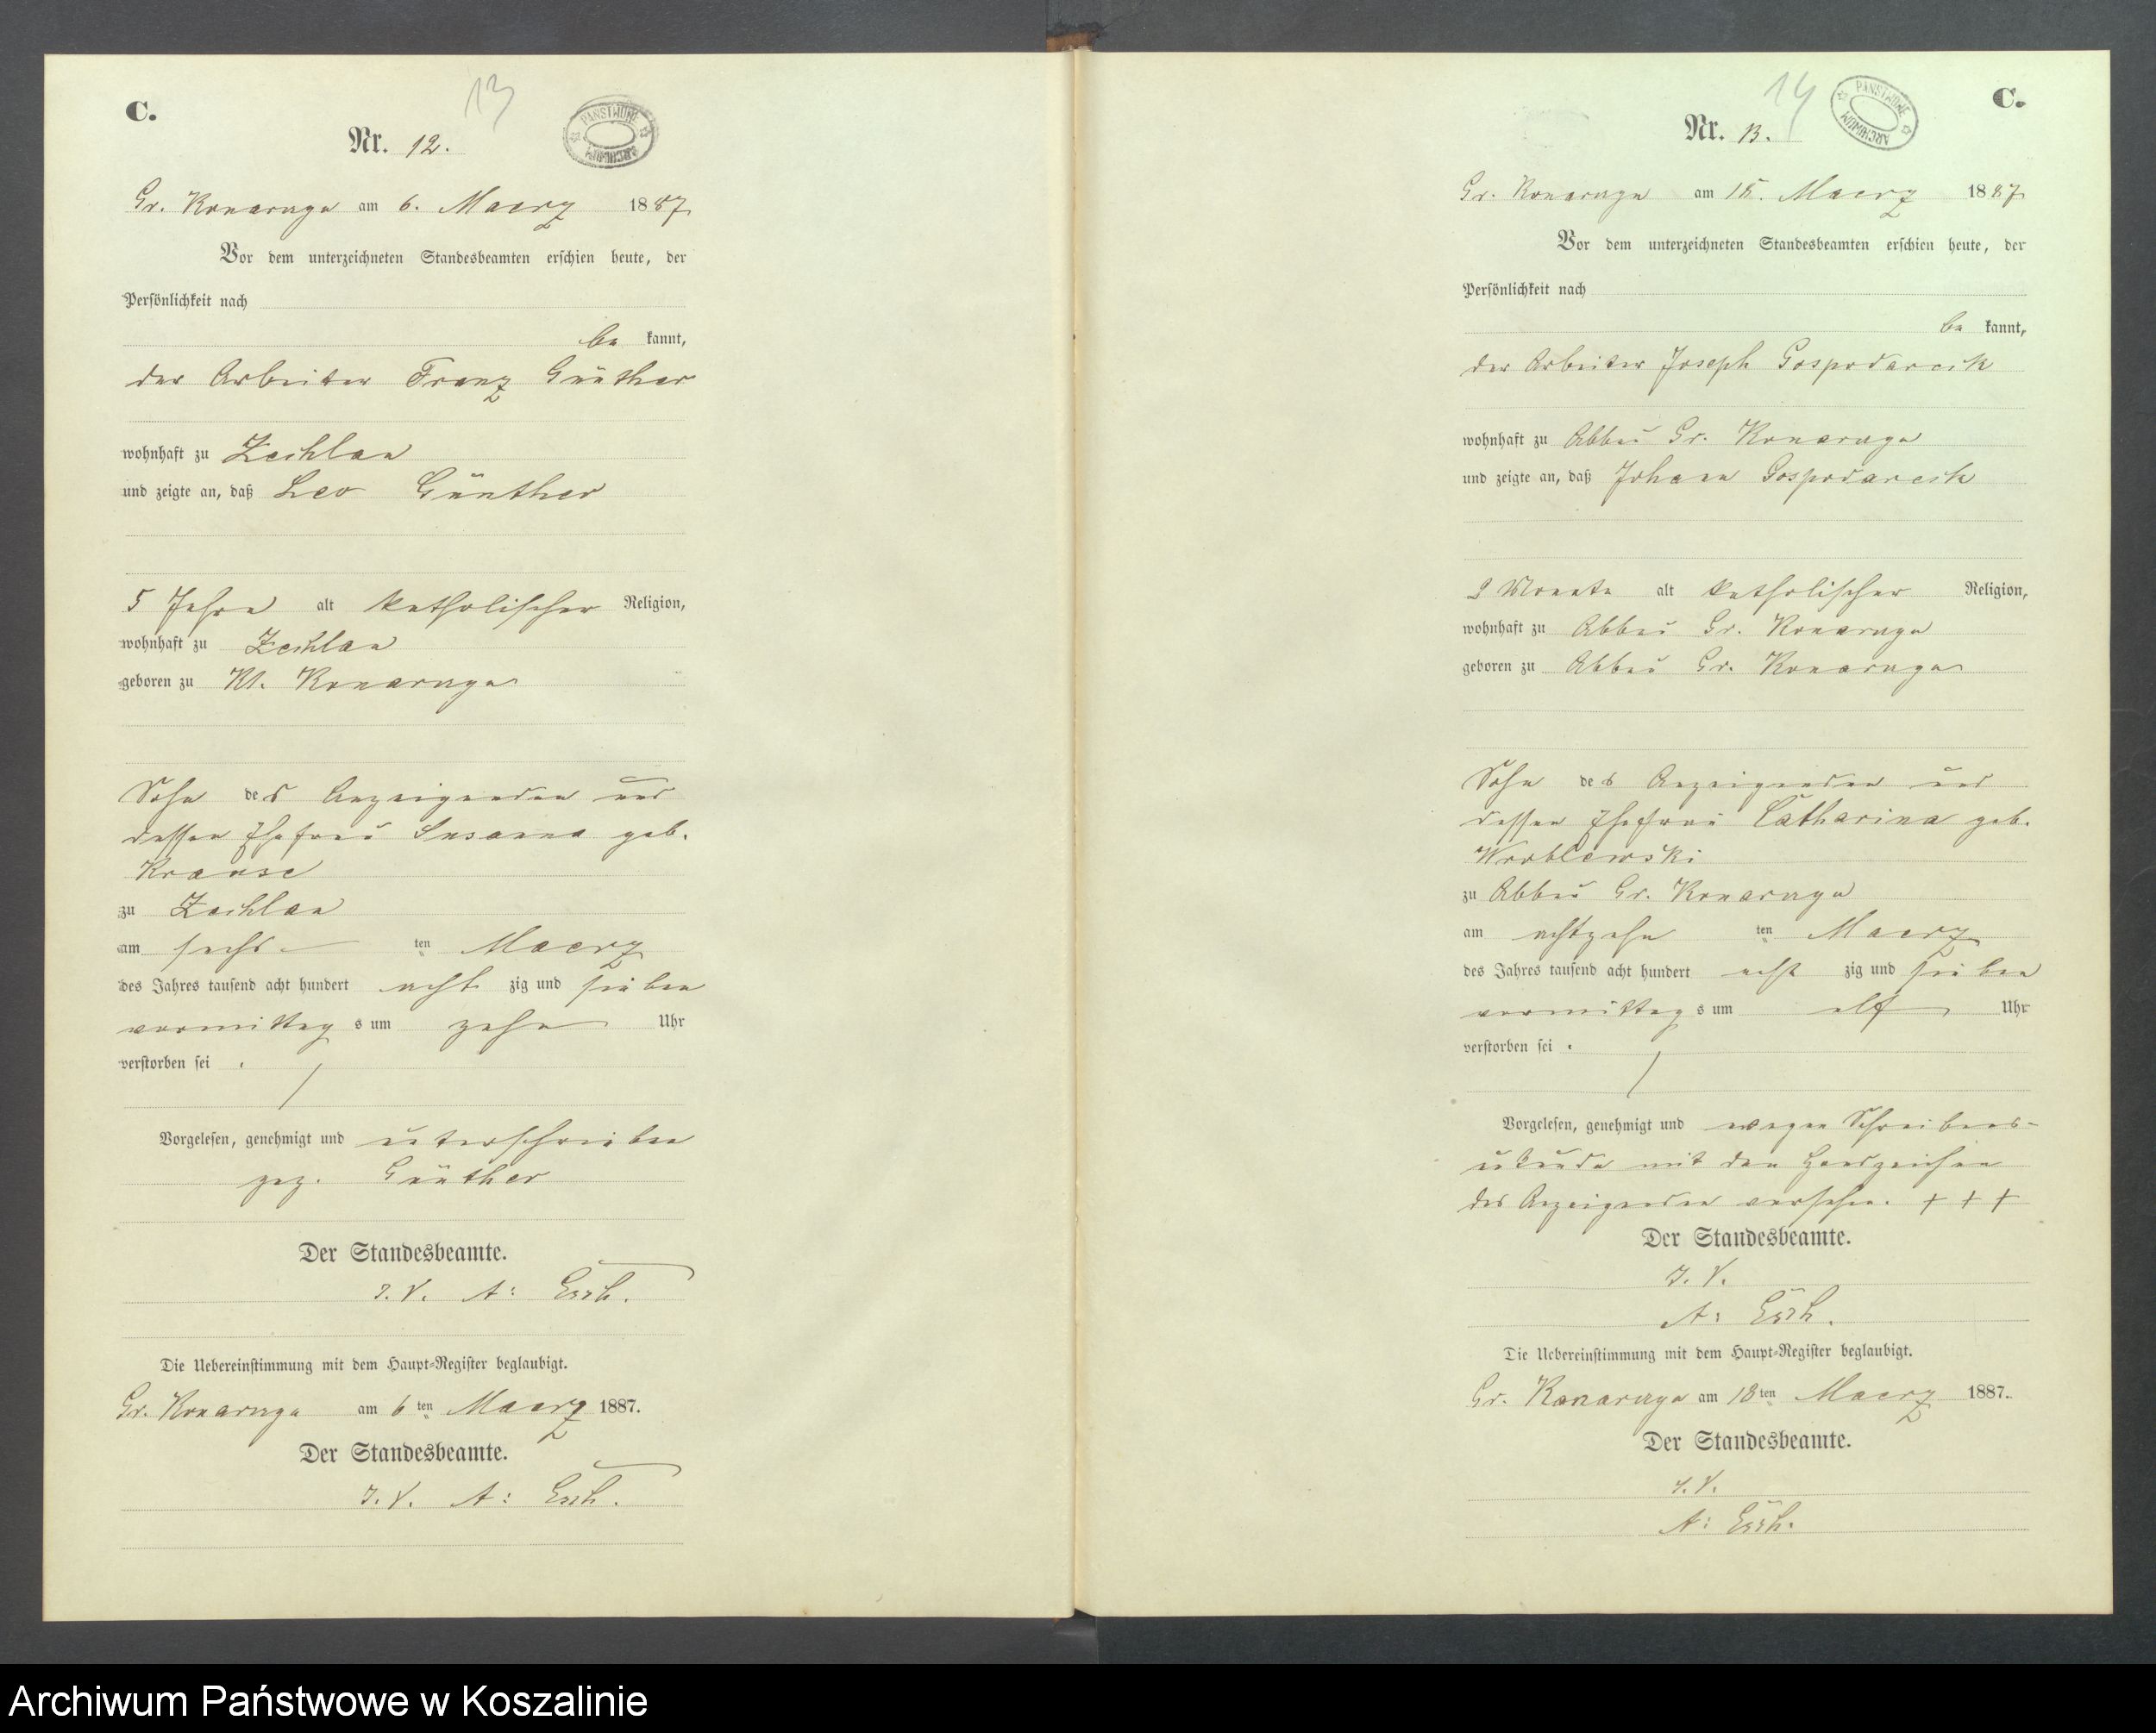 C.
13
PAŃSTWOWE ARCHIWUM
Nr. 12.
Gr. Konarzyn am 6. Maerz 1887
Vor dem unterzeichneten Standesbeamten erschien heute, der
Persönlichkeit nach
be kannt,
der Arbeiter Franz Günther
wohnhaft zu Zechlau
und zeigte an, daß Leo Günther
5 Jahre alt katholischer Religion,
wohnhaft zu Zechlau
geboren zu Kl. Konarzyn
Sohn des Anzeigenden und
dessen Ehefrau Susanna geb.
Krause
zu Zechlau
am sechs ten Maerz
des Jahres tausend acht hundert acht zig und sieben
vormittag s um zehn Uhr
verstorben sei.
Vorgelesen, genehmigt und unterschrieben
gez. Günther
Der Standesbeamte.
I. V. A:
Die Uebereinstimmung mit dem Haupt-Register beglaubigt.
Gr. Konarzyn am 6 ten Maerz 1887.
Der Standesbeamte.
I. V. A:
14
PAŃSTWOWE ARCHIWUM
C.
Nr. 13.
Gr. Konarzyn am 18. Maerz 1887
Vor dem unterzeichneten Standesbeamten erschien heute, der
Persönlichkeit nach
be kannt,
der Arbeiter Joseph Gospodarcik
wohnhaft zu Abbau Gr. Konarzyn
und zeigte an, daß Johann Gospodarcik
Monate alt katholischer Religion,
wohnhaft zu Abbau Gr. Konarzyn
geboren zu Abbau Gr. Konarzyn
Sohn des Anzeigenden und
dessen Ehefrau Catharina geb.
Wroblewski
zu Abbau Gr. Konarzyn
am achtzehn ten Maerz
des Jahres tausend acht hundert acht zig und sieben
vormittag s um elf Uhr
verstorben sei.
Vorgelesen, genehmigt und wegen Schreibens-
unkunde mit den Handzeichen
des Anzeigenden versehen. + + +
Der Standesbeamte.
I. V.
A:
Die Uebereinstimmung mit dem Haupt-Register beglaubigt.
Gr. Konarzyn am 18 ten Maerz 1887.
Der Standesbeamte.
I. V.
A:
Archiwum Państwowe w Koszalinie